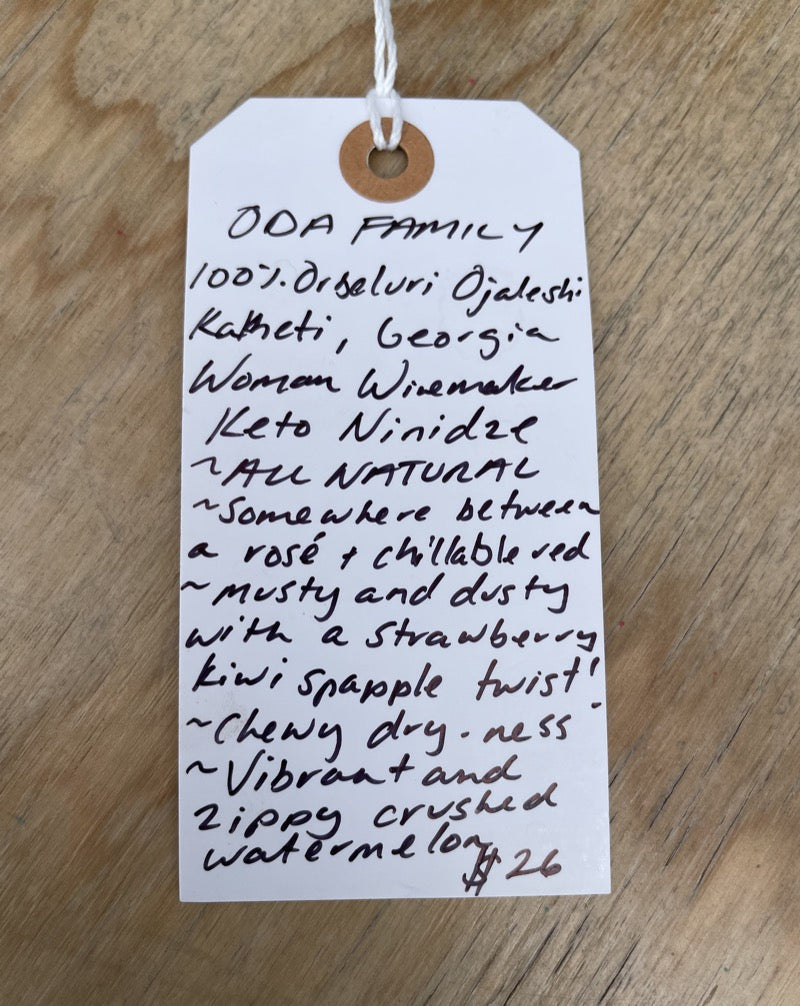 ODA FAMILY
100% Orbeluri Ojaleshi
Kakheti, Georgia
Woman Winemaker
Keto Ninidze
~ALL NATURAL
~Somewhere between
a rosé + chillable red
~musty and dusty
with a strawberry
kiwi snapple twist!
~Chewy dry-ness
~Vibrant and
zippy crushed
watermelon
$26